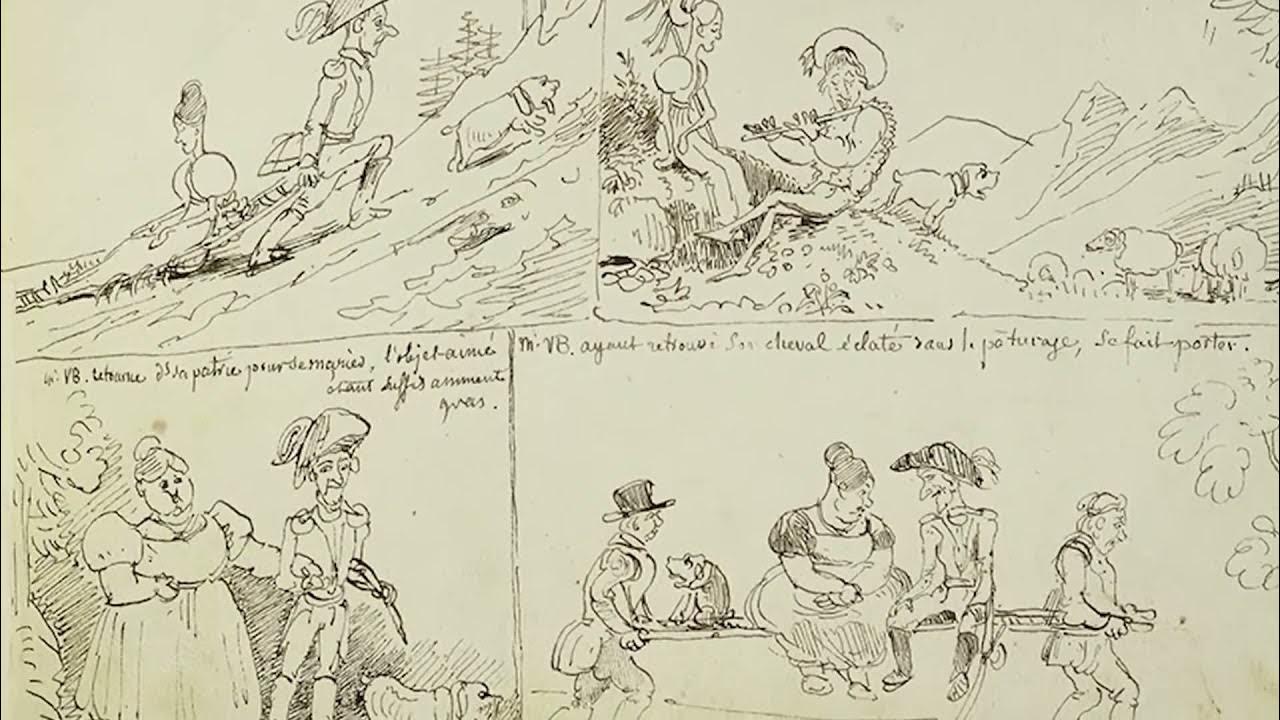 Mr. VB. retourne ds sa patrie pour se marier, l'objet aimé
étant suffisamment
gras.
Mr. VB. ayant retrouvé son cheval éclaté dans le pâturage, se fait porter.